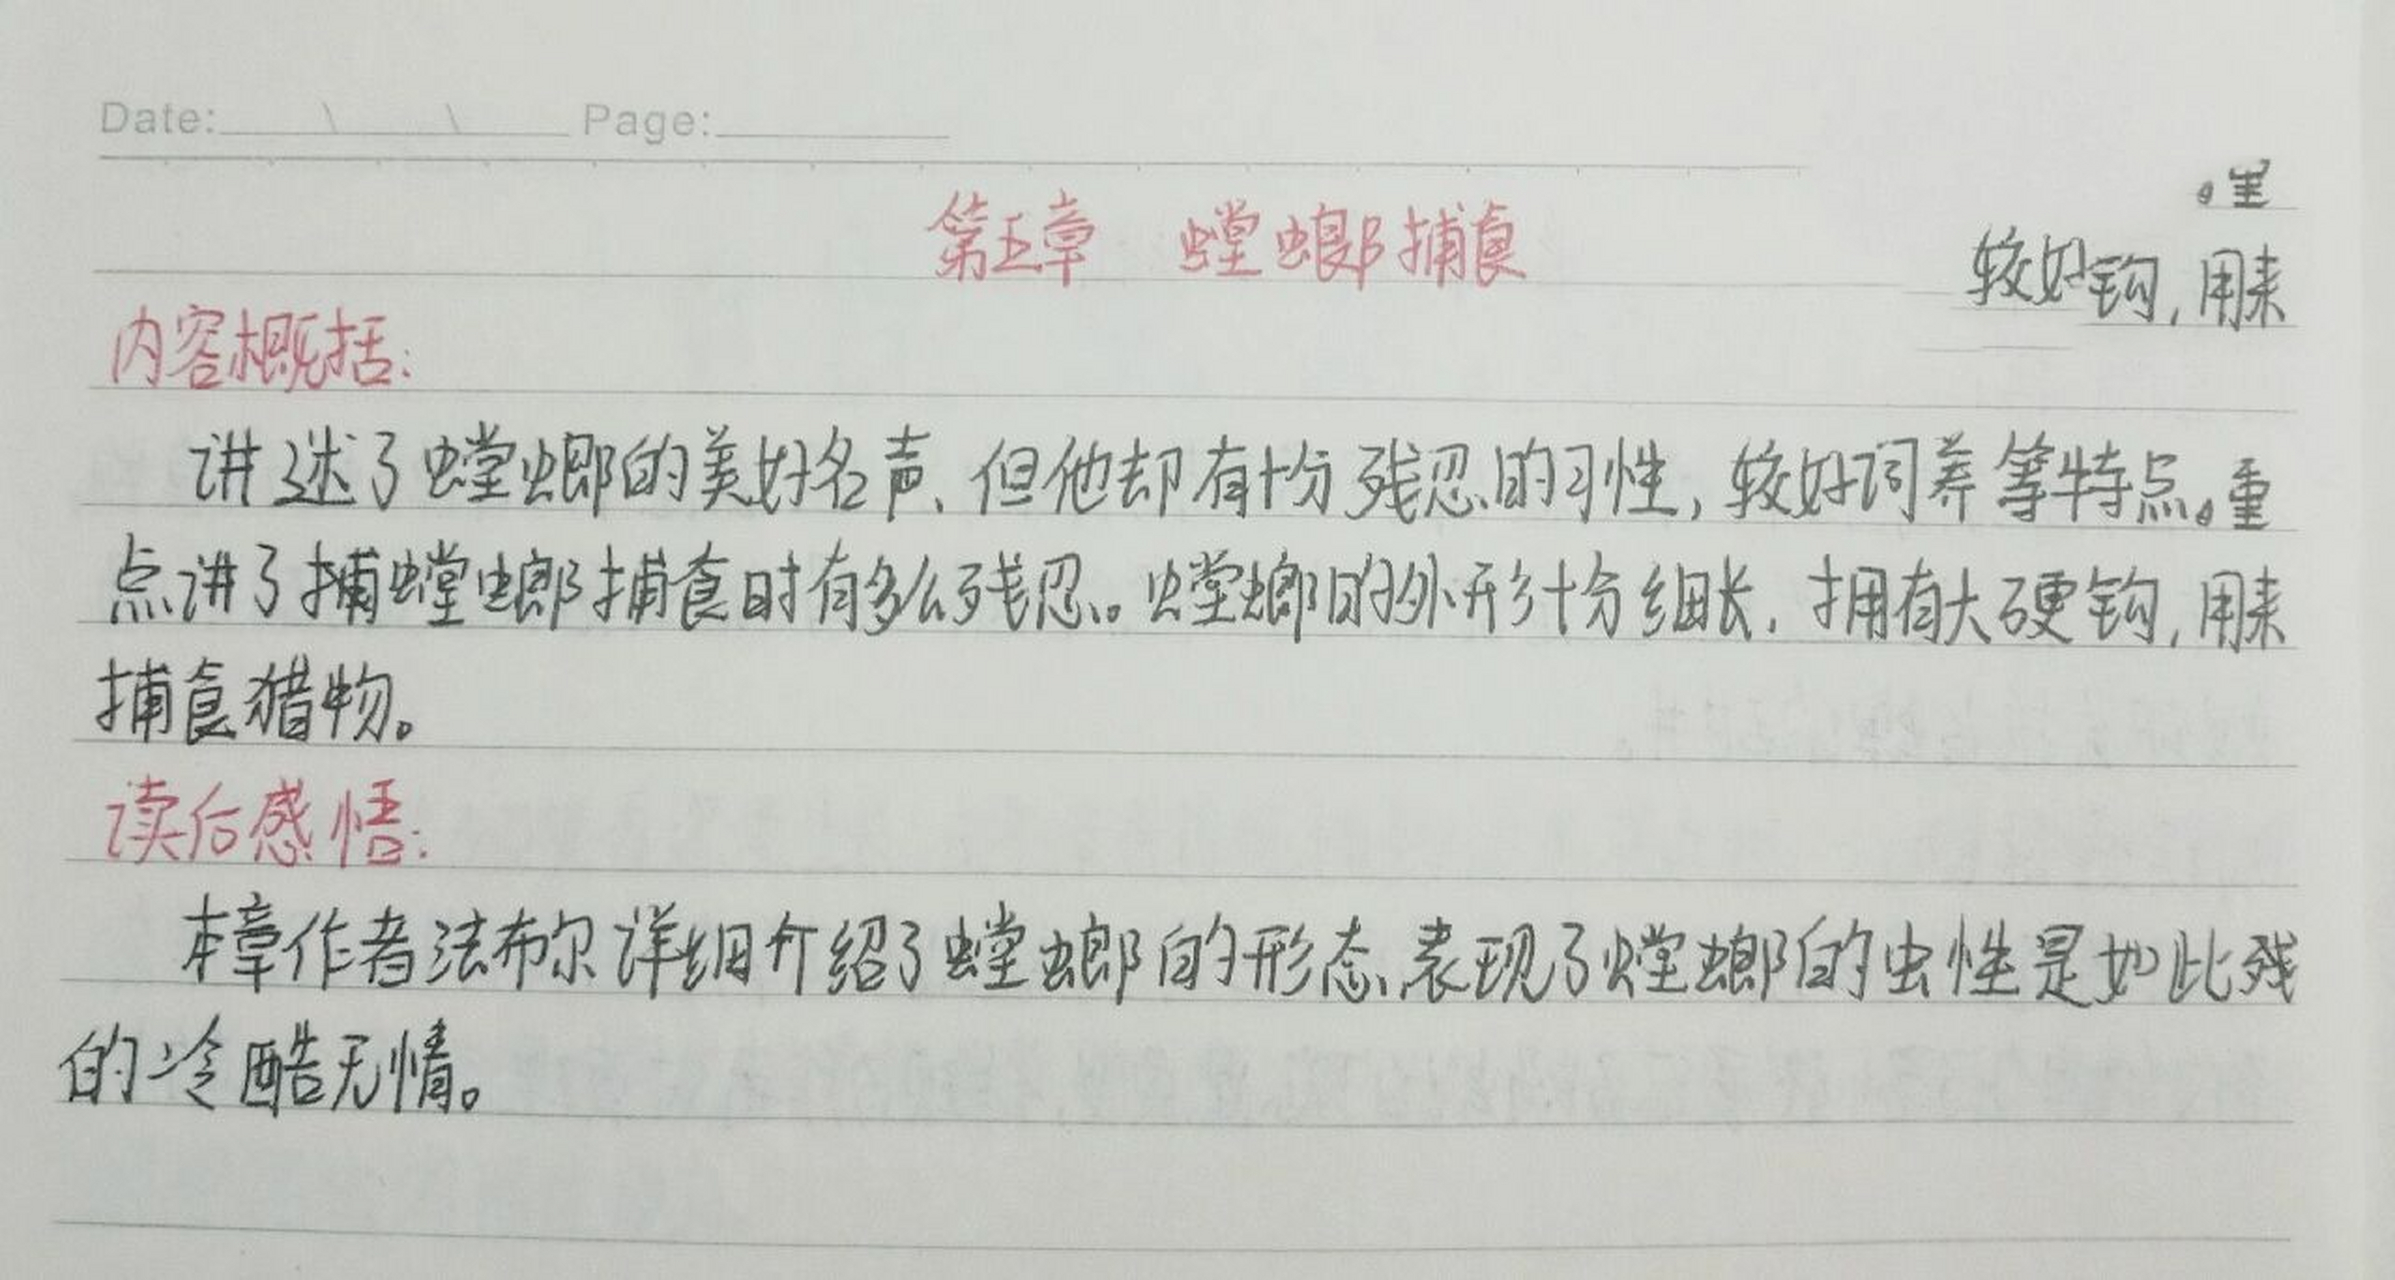 Date: \ \ Page:
。里
第五章 螳螂捕食
较好钩,用来
内容概括:
讲述了螳螂的美好名声、但他却有十分残忍的习性,较好词养等特点。重
点讲了捕螳螂捕食时有多么残忍。螳螂的外形十分细长,拥有大硬钩,用来
捕食猎物。
读后感悟:
本章作者法布尔详细介绍了螳螂的形态、表现了螳螂的虫性是如此残
的冷酷无情。